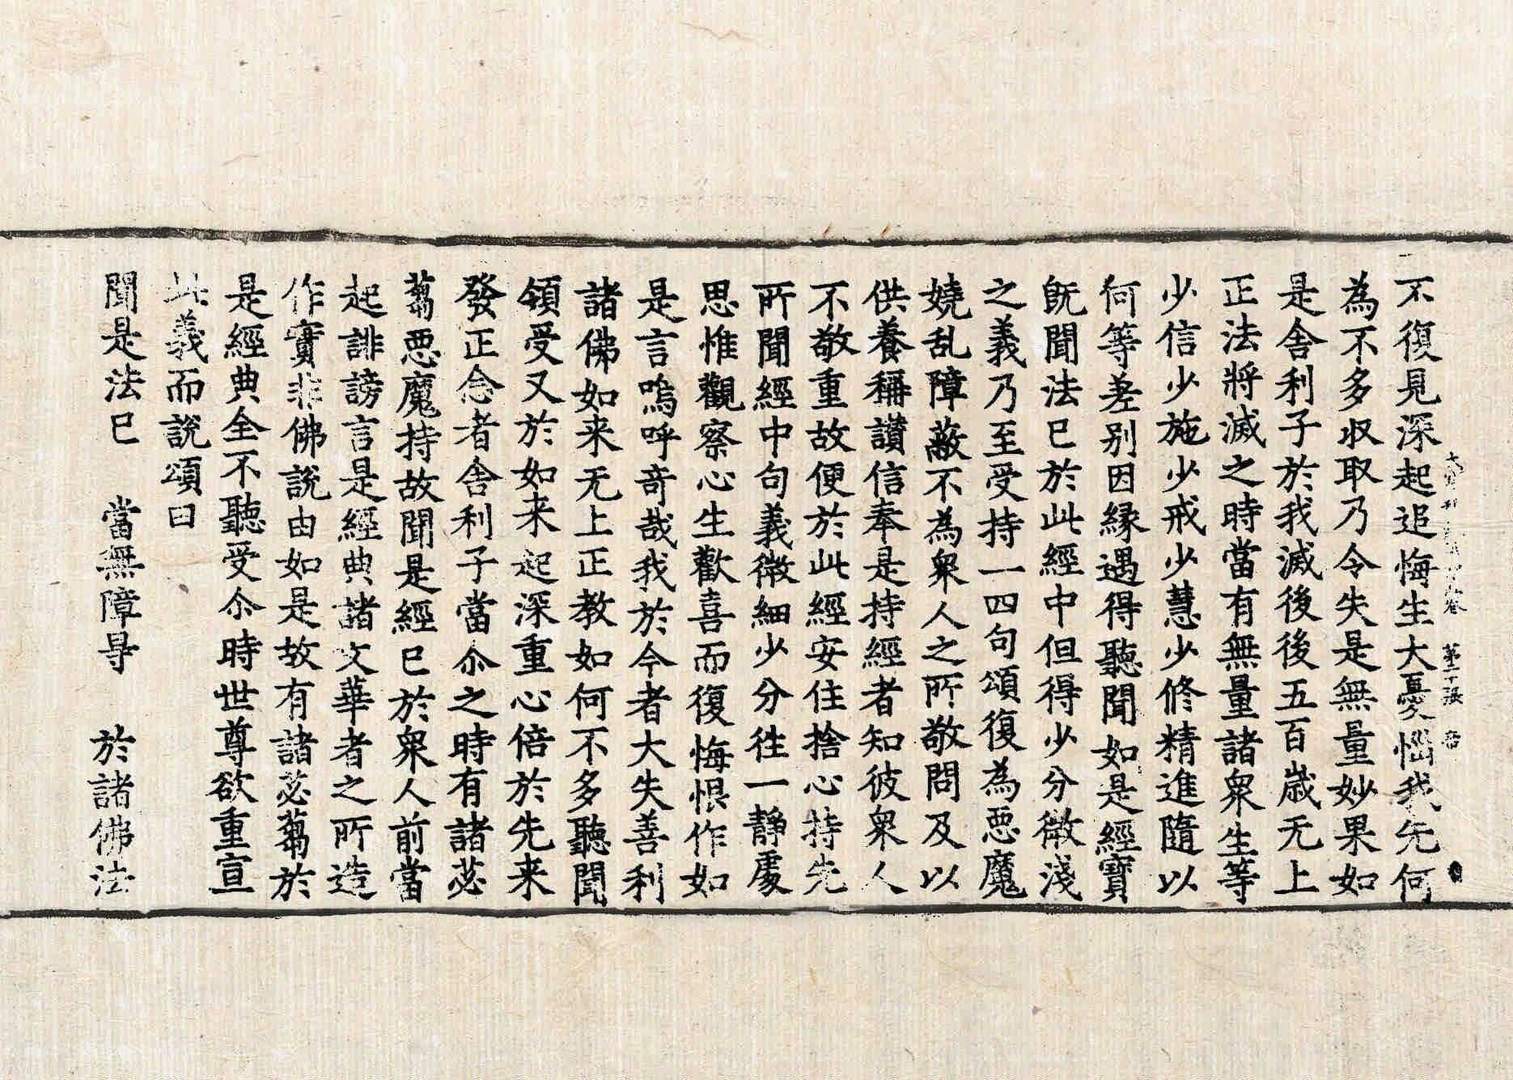 不復見深起追悔生大憂惱我先何
為不多収取乃令失是無量妙果如
是舍利子於我滅後後五百歲无上
正法將滅之時當有無量諸衆生等
少信少施少戒少慧少修精進隨以
何等差別因緣遇得聽聞如是經寶
旣聞法已於此經中但得少分微淺
之義乃至受持一四句頌復為惡魔
嬈乱障蔽不為衆人之所敬問及以
供養稱讃信奉是持經者知彼衆人
不敬重故便於此經安住捨心持先
所聞經中句義微細少分往一靜處
思惟觀察心生歡喜而復悔恨作如
是言嗚呼奇哉我於今者大失善利
諸佛如来无上正教如何不多聽聞
領受又於如来起深重心倍於先来
發正念者舍利子當尒之時有諸苾
蒭惡魔持故聞是經已於衆人前當
起誹謗言是經典諸文華者之所造
作實非佛說由如是故有諸苾蒭於
是經典全不聽受尒時世尊欲重宣
此義而說頌曰
聞是法已　當無障㝵　於諸佛法
第二十張